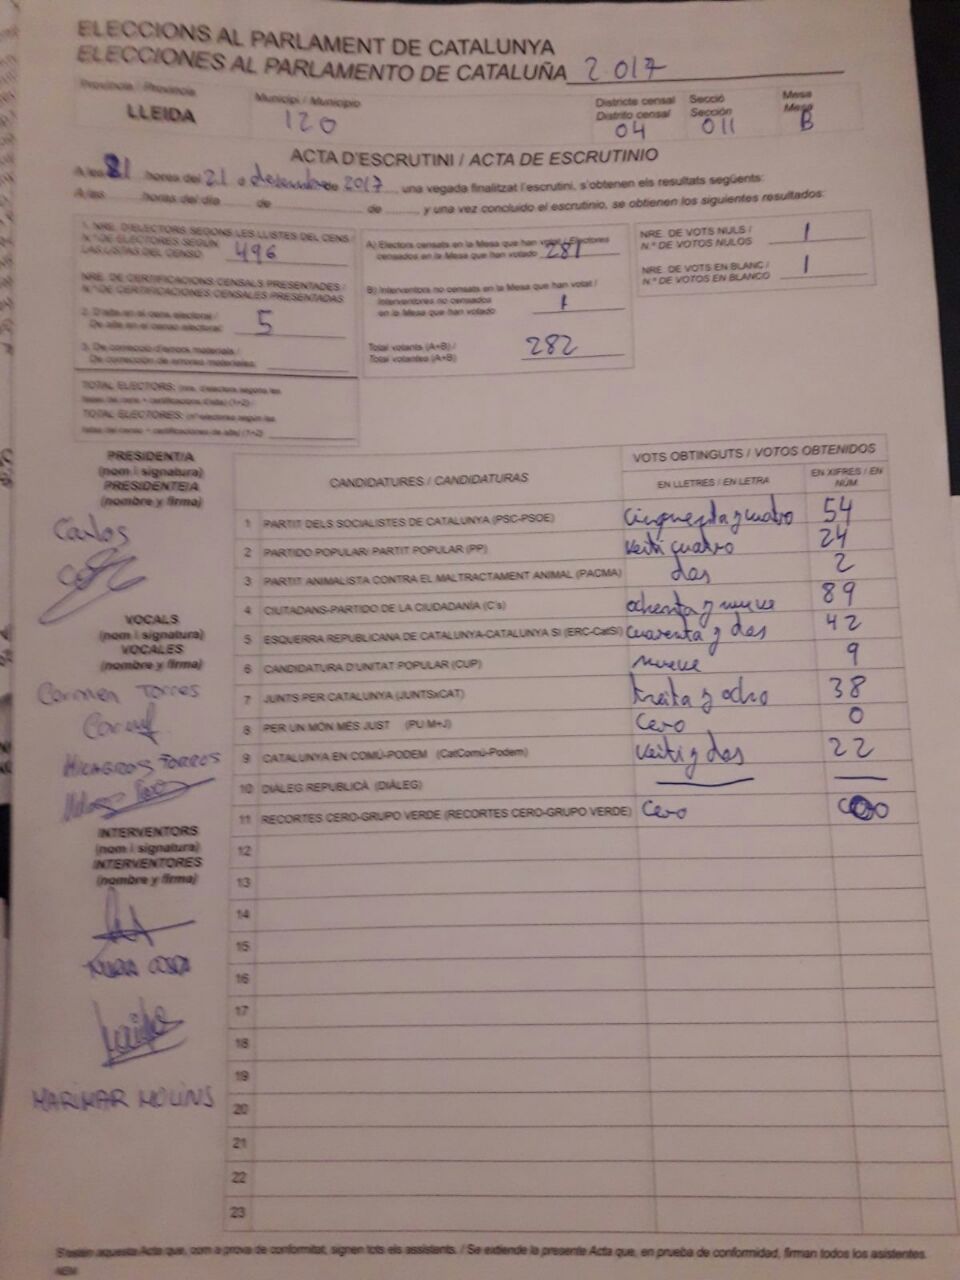 ELECCIONS AL PARLAMENT DE CATALUNYA
ELECCIONES AL PARLAMENTO DE CATALUÑA 2017
Província / Provincia
LLEIDA
Municipi / Municipio
120
Districte censal
Distrito censal
04
Secció
Sección
011
Mesa
Mesa
B
ACTA D'ESCRUTINI / ACTA DE ESCRUTINIO
A les 21 hores del 21 de 2017, una vegada finalitzat l'escrutini, s'obtenen els resultats següents:
A las horas del día de de , y una vez concluido el escrutinio, se obtienen los siguientes resultados:
1. NRE. D'ELECTORS SEGONS LES LLISTES DEL CENS /
N.º DE ELECTORES SEGÚN
LAS LISTAS DEL CENSO 496
NRE. DE CERTIFICACIONS CENSALS PRESENTADES /
N.º DE CERTIFICACIONES CENSALES PRESENTADAS
2. D'alta en el cens electoral /
De alta en el censo electoral: 5
3. De correcció d'errors materials /
De corrección de errores materiales:
TOTAL ELECTORS: (nre. d'electors segons les
llistes de cens + certificacions d'alta) (1+2) /
TOTAL ELECTORES: (nº electores según las
listas del censo + certificaciones de alta) (1+2)
A) Electors censats en la Mesa que han votat / Electores
censados en la Mesa que han votado 281
B) Interventors no censats en la Mesa que han votat /
Interventores no censados
en la Mesa que han votado 1
Total votants (A+B) /
Total votantes (A+B) 282
NRE. DE VOTS NULS /
N.º DE VOTOS NULOS 1
NRE. DE VOTS EN BLANC /
N.º DE VOTOS EN BLANCO 1
PRESIDENTIA
(nom i signatura)
PRESIDENTE/A
(nombre y firma)
Carlos
VOCALS
(nom i signatura)
VOCALES
(nombre y firma)
Carmen Torres
MILAGROS TORRES
INTERVENTORS
(nom i signatura)
INTERVENTORES
(nombre y firma)
MARIMAR MOLINS
CANDIDATURES / CANDIDATURAS
VOTS OBTINGUTS / VOTOS OBTENIDOS
EN LLETRES / EN LETRA
EN XIFRES / EN NÚM.
1 PARTIT DELS SOCIALISTES DE CATALUNYA (PSC-PSOE) cinquenta y cuatro 54
2 PARTIDO POPULAR/ PARTIT POPULAR (PP) veiti cuatro 24
3 PARTIT ANIMALISTA CONTRA EL MALTRACTAMENT ANIMAL (PACMA) dos 2
4 CIUTADANS-PARTIDO DE LA CIUDADANÍA (C's) ochenta y nueve 89
5 ESQUERRA REPUBLICANA DE CATALUNYA-CATALUNYA SÍ (ERC-CatSí) cuarenta y dos 42
6 CANDIDATURA D'UNITAT POPULAR (CUP) nueve 9
7 JUNTS PER CATALUNYA (JUNTSxCAT) treita y ocho 38
8 PER UN MÓN MÉS JUST (PU M+J) cero 0
9 CATALUNYA EN COMÚ-PODEM (CatComú-Podem) veiti y dos 22
10 DIÀLEG REPUBLICÀ (DIÀLEG)
11 RECORTES CERO-GRUPO VERDE (RECORTES CERO-GRUPO VERDE) cero
12
13
14
15
16
17
18
19
20
21
22
23
S'estén aquesta Acta que, com a prova de conformitat, signen tots els assistents. / Se extiende la presente Acta que, en prueba de conformidad, firman todos los asistentes.